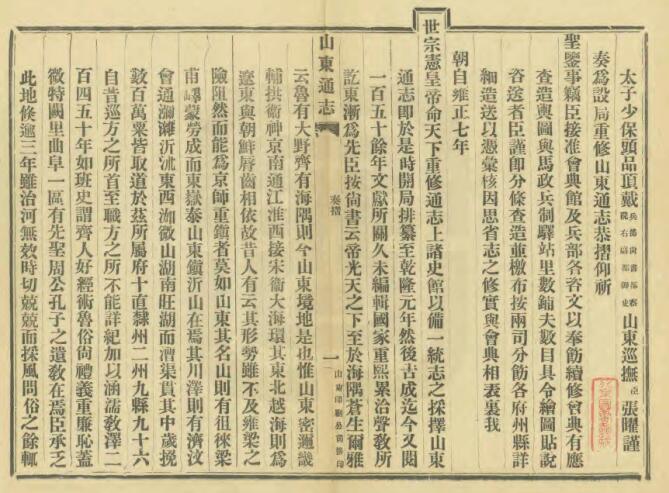 太子少保頭品頂戴兵部尚書都察院右副都御史山東巡撫臣張曜謹
奏爲設局重修山東通志恭摺仰祈
聖鑒事竊臣接准會典館及兵部各咨文以奉飭續修會典有應
查造輿圖與馬政兵制驛站里數鋪夫數目具令繪圖貼說
咨送者臣謹卽分條查造並檄布按兩司分飭各府州縣詳
細造送以憑彙核因思省志之修實與會典相表裏我
朝自雍正七年
世宗憲皇帝命天下重修通志上諸史館以備一統志之採擇山東
通志卽於是時開局排纂至乾隆元年然後告成迄今又閱
一百五十餘年文獻所關久未編輯國家重熙累治聲教所
訖東漸爲先臣按尙書云帝光天之下至於海隅蒼生爾雅
山東通志
奏摺
一
山東印刷公司排印
云魯有大野齊有海隅則今山東境地是也惟山東密邇畿
輔拱衞神京南通江淮西接宋衞大海環其東北越海則爲
遼東與朝鮮脣齒相依故昔人有云其形勢雖不及雍梁之
險阻然而能爲京師重鎭者莫如山東其名山則有徂徠梁
甫嶧蒙勞成而東嶽泰山東鎭沂山在焉其川澤則有濟汶
會通瀰濰沂沭東西泇微山湖南旺湖而漕渠貫其中歲挽
數百萬粟皆取道於茲所屬府十直隸州二州九縣九十六
自昔巡方之所首至職方之所不能詳紀加以涵濡敎澤二
百四五十年如班史謂齊人好經術魯俗尙禮義重廉恥蓋
微特闕里曲阜一區有先聖周公孔子之遺敎在焉臣承乏
此地倏逾三年雖治河無效時切兢兢而採風問俗之餘輒